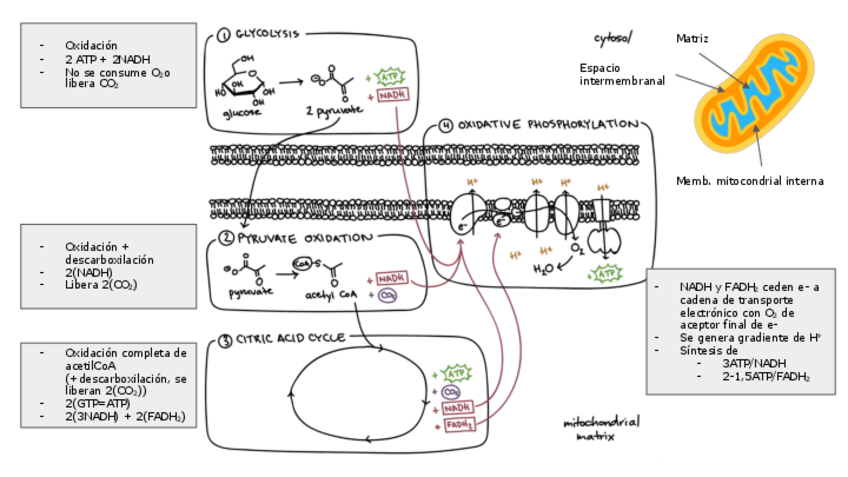 - Oxidación
- 2 ATP + 2NADH
- No se consume O₂o
libera CO₂
① GLYCOLYSIS
HO
OH
HO
OH
OH
glucose
2 pyruvate
+ ATP
+ NADH
cytosol
Matriz
Espacio
intermembranal
Memb. mitocondrial interna
④ OXIDATIVE PHOSPHORYLATION
H⁺
H⁺
H⁺
H⁺
e⁻
e⁻
H⁺
H⁺
O₂
H₂O
+ ATP
- Oxidación +
descarboxilación
- 2(NADH)
- Libera 2(CO₂)
② PYRUVATE OXIDATION
CoA-S
pyruvate
acetyl CoA
+ NADH
+ CO₂
- NADH y FADH₂ ceden e- a
cadena de transporte
electrónico con O₂ de
aceptor final de e-
- Se genera gradiente de H⁺
- Síntesis de
- 3ATP/NADH
- 2-1,5ATP/FADH₂
- Oxidación completa de
acetilCoA
(+descarboxilación, se
liberan 2(CO₂))
- 2(GTP=ATP)
- 2(3NADH) + 2(FADH₂)
③ CITRIC ACID CYCLE
+ ATP
+ CO₂
+ NADH
+ FADH₂
mitochondrial
matrix